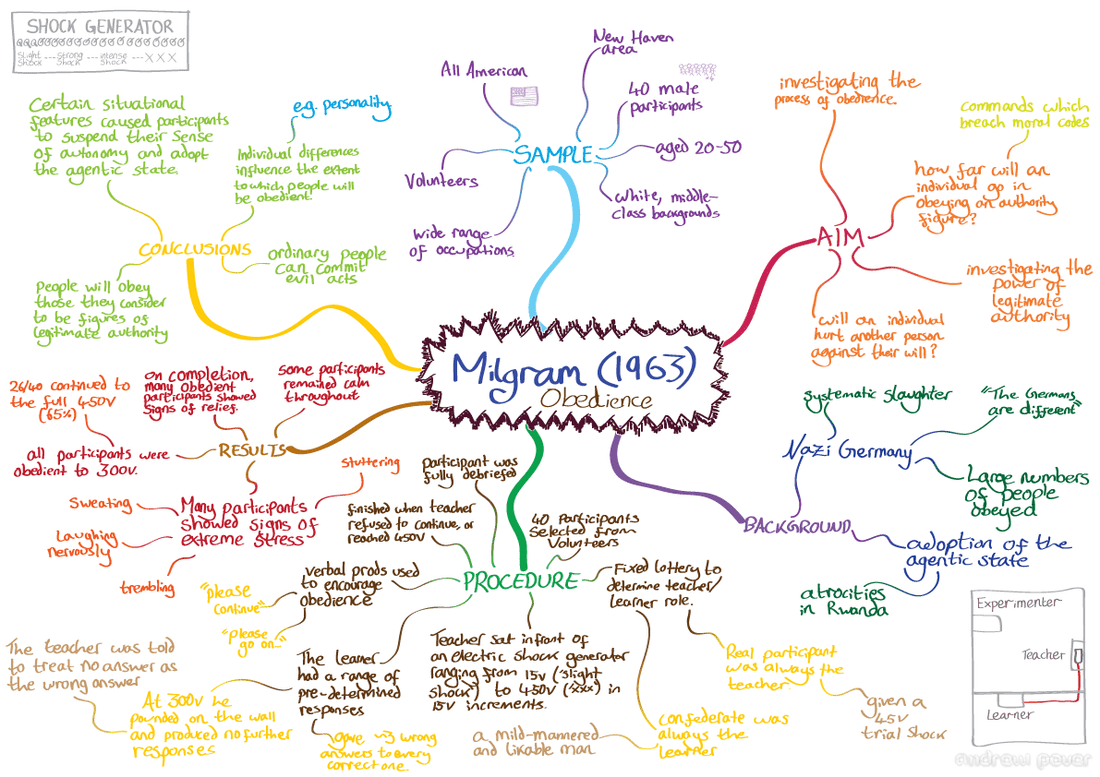 SHOCK GENERATOR
Slight --- Strong --- intense --- XXX
Shock Shock Shock
Milgram (1963)
Obedience
SAMPLE
All American
New Haven
area
40 male
participants
aged 20-50
White, middle-
class backgrounds
Volunteers
wide range
of occupations
AIM
investigating the
process of obedience.
commands which
breach moral codes
how far will an
individual go in
obeying an authority
figure?
investigating the
power of
legitimate
authority
will an individual
hurt another person
against their will?
BACKGROUND
Nazi Germany
systematic slaughter
"The Germans
are different"
Large numbers
of people
obeyed
adoption of the
agentic state
atrocities
in Rwanda
PROCEDURE
40 Participants
Selected from
Volunteers
Fixed lottery to
determine teacher/
learner role.
Real participant
was always the
teacher.
given a
45V
trial shock
confederate was
always the
learner
a mild-mannered
and likable man.
Teacher sat infront of
an electric shock generator
ranging from 15v ('slight
shock') to 450v ('xxx') in
15v increments.
The learner
had a range of
pre-determined
responses
gave ~3 wrong
answers to every
correct one.
At 300v he
pounded on the wall
and produced no further
responses
The teacher was told
to treat no answer as
the wrong answer
Verbal prods used
to encourage
obedience
"please
continue"
"please
go on..."
finished when teacher
refused to continue, or
reached 450V
participant was
fully debriefed
RESULTS
some participants
remained calm
throughout
on completion,
many obedient
participants showed
signs of relief.
all participants were
obedient to 300v.
26/40 continued to
the full 450V
(65%)
Many participants
showed signs of
extreme stress
stuttering
Sweating
Laughing
nervously
trembling
CONCLUSIONS
Certain situational
features caused participants
to suspend their sense
of autonomy and adopt
the agentic state.
Individual differences
influence the extent
to which people will
be obedient.
e.g. personality
ordinary people
can commit
evil acts
People will obey
those they consider
to be figures of
legitimate authority
Experimenter
Teacher
Learner
andrew povar